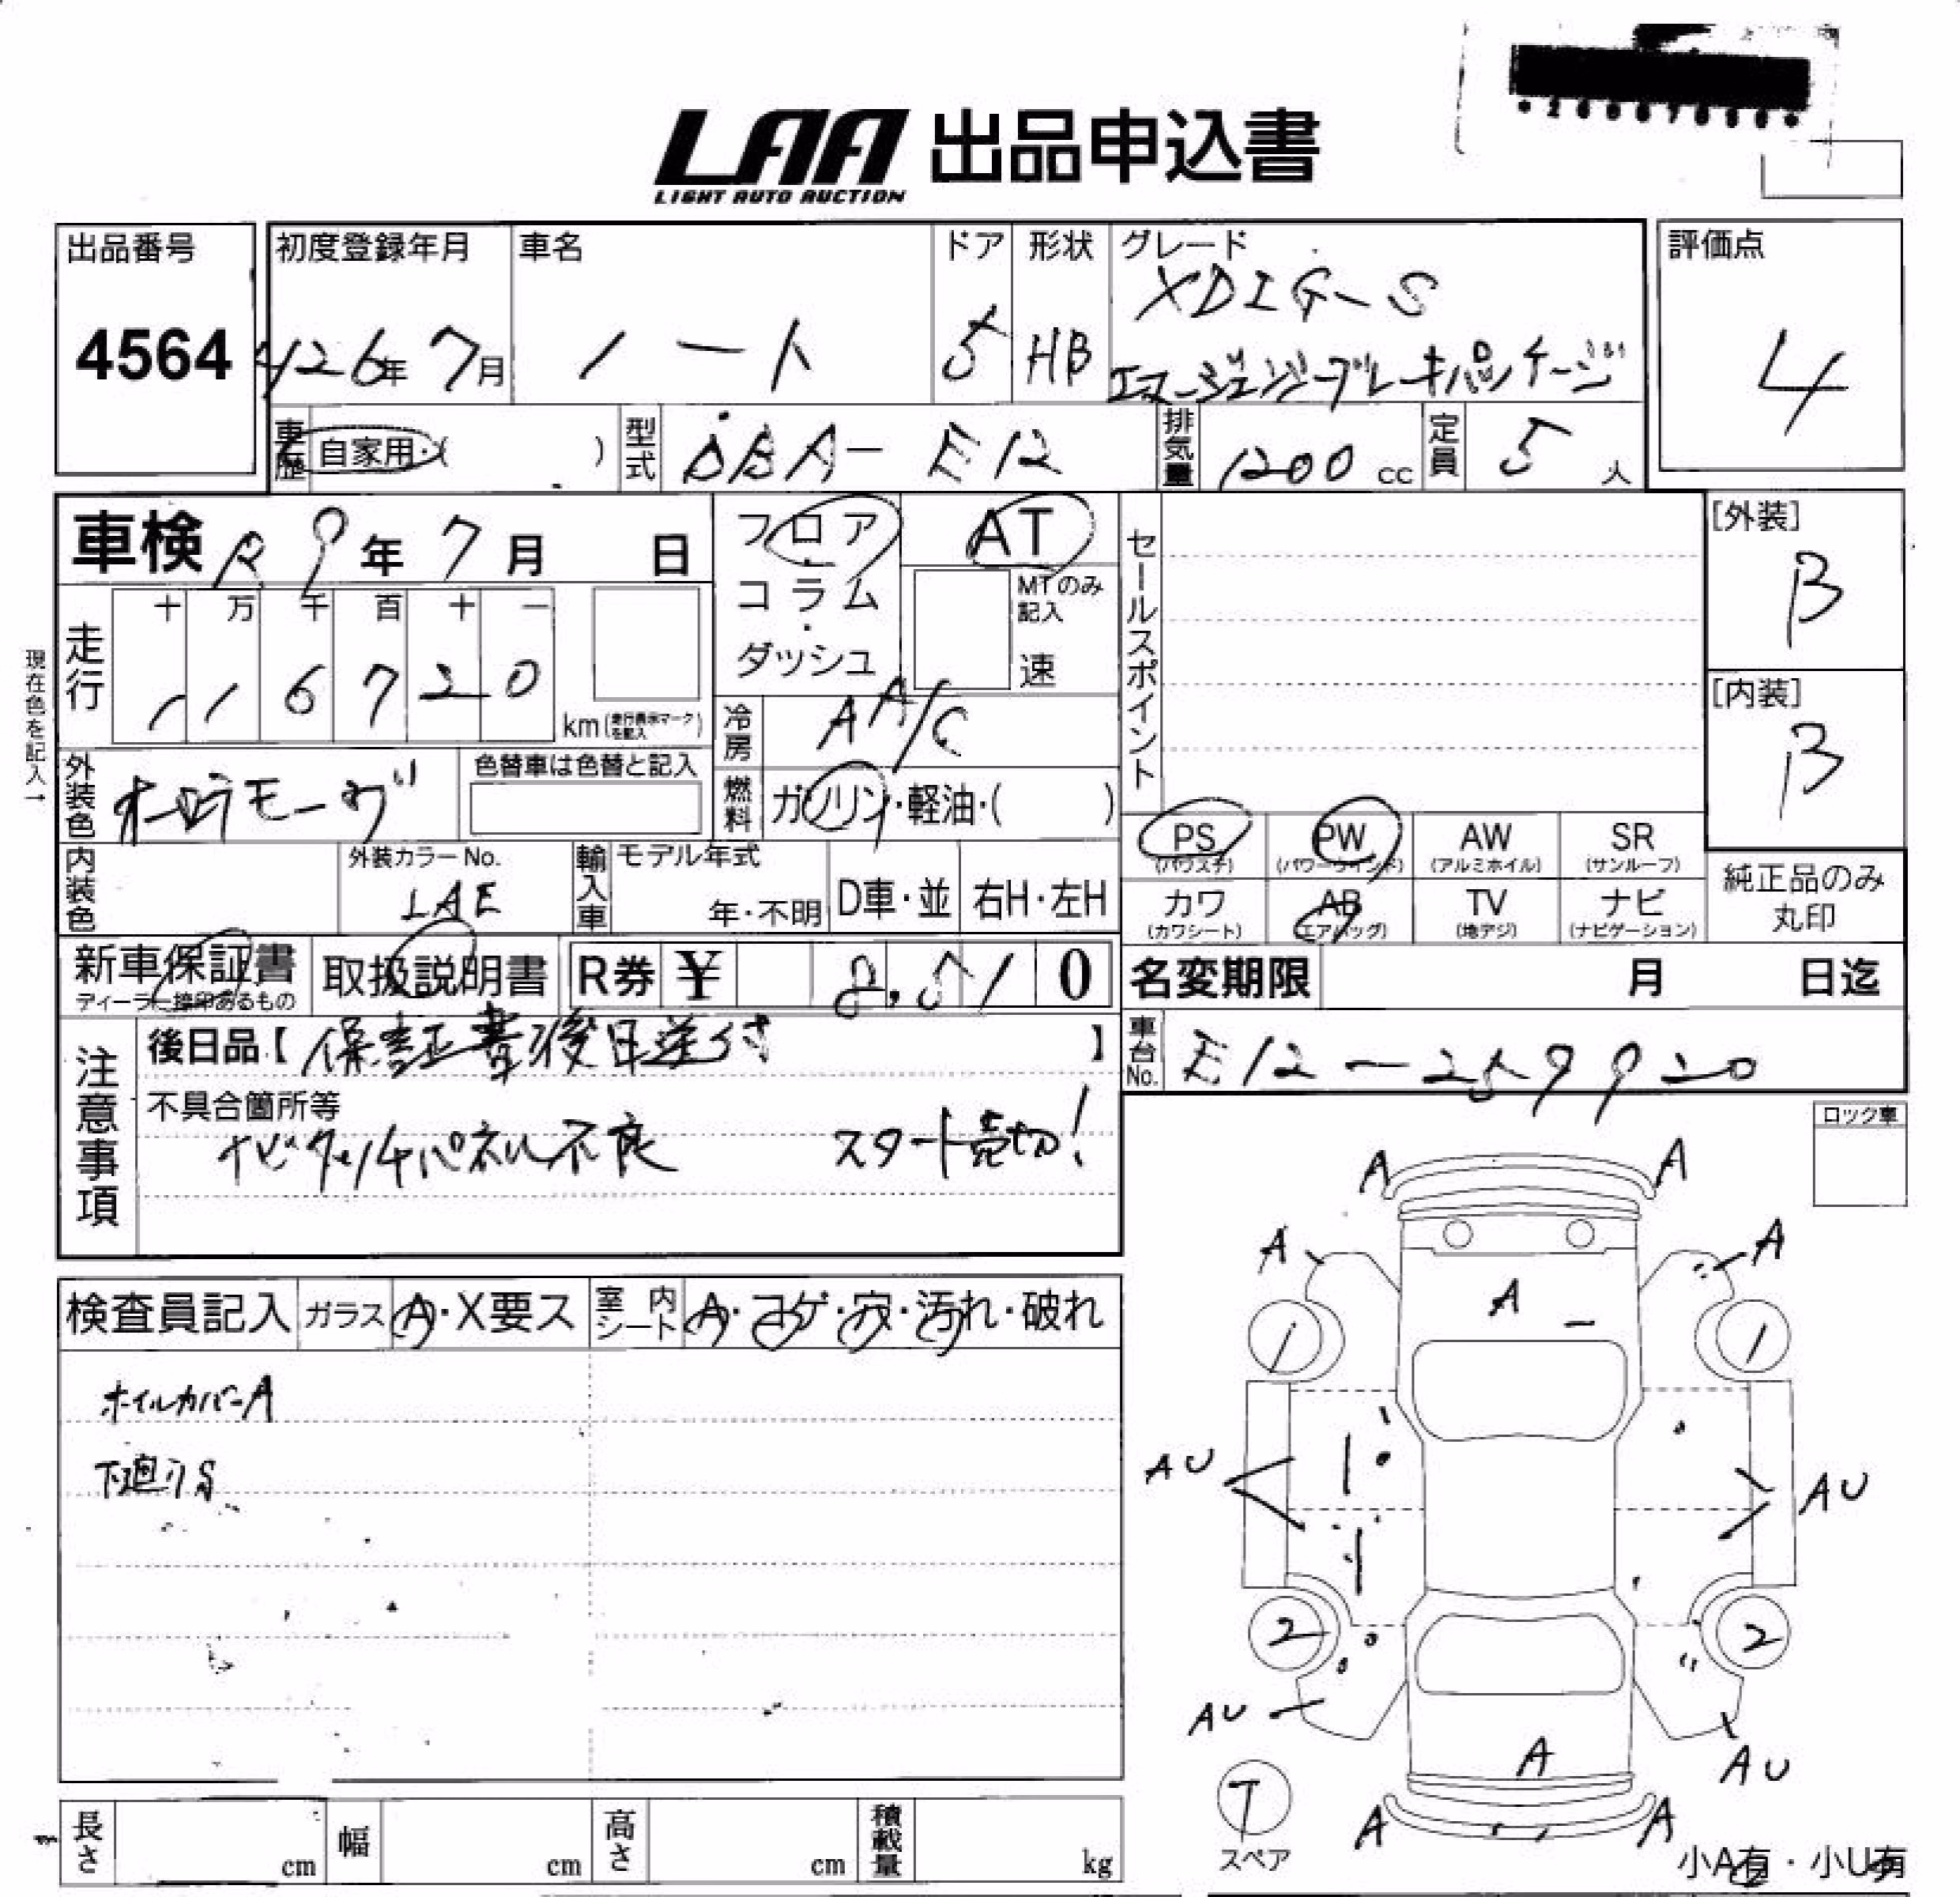 LAA 出品申込書
LIGHT AUTO AUCTION
出品番号
4564
初度登録年月
H26年 7月
車名
ノート
ドア
5
形状
HB
グレード
XDIG-S
エマージェンシーブレーキパッケージ
評価点
4
車歴
自家用・( )
型式
DBA-E12
排気量
1200 cc
定員
5 人
車検 R9年 7月 日
フロア・コラム・ダッシュ
AT
MTのみ記入
速
セールスポイント
[外装]
B
[内装]
B
現在色を記入→
走行
十 万 千 百 十 一
1 1 6 7 2 0
km(走行表示マークを記入)
冷房
AA/C
外装色
オーロラモーヴ
色替車は色替と記入
燃料
ガソリン・軽油・( )
内装色
外装カラーNo.
LAE
輸入車
モデル年式
年・不明
D車・並
右H・左H
PS (パワステ)
PW (パワーウインド)
AW (アルミホイル)
SR (サンルーフ)
カワ (カワシート)
AB (エアバッグ)
TV (地デジ)
ナビ (ナビゲーション)
純正品のみ丸印
新車保証書
ディーラー捺印あるもの
取扱説明書
R券 ¥ 8,510
名変期限 月 日迄
注意事項
後日品【保証書後日送付】
不具合箇所等
ナビタッチパネル不良 スタート売切!
車台No.
E12-259920
ロック車
検査員記入
ガラス A・X要ス
室内シート A・コゲ・穴・汚れ・破れ
ホイルカバーA
下廻りS
A A
A A
A
1 1
AU AU
2 2
AU AU
A
T
スペア
A A
小A有・小U有
長さ cm
幅 cm
高さ cm
積載量 kg